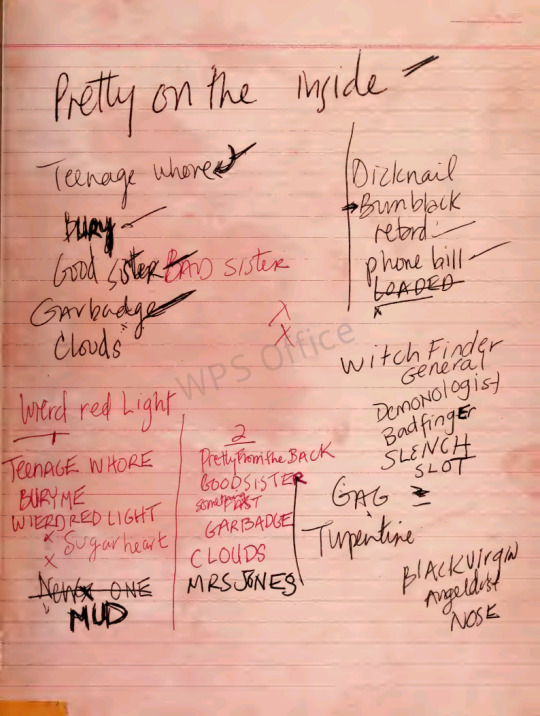 Pretty on the inside
Teenage whore
BURY
Good sister BAD sister
Garbadge
Clouds
Dicknail
Burnblack
retard
phone bill
LOADED
x
WPS Office
Witch Finder
General
Demonologist
Badfinger
SLENCH
SLOT
GAG
Turpentine
Blackvirgin
Angeldust
NOSE
Wierd red Light
1
TEENAGE WHORE
BURY ME
WIERD RED LIGHT
x Sugarheart
x
New ONE
MUD
2
Pretty From the BACK
GOOD SISTER
GARBADGE
CLOUDS
MRS JONES